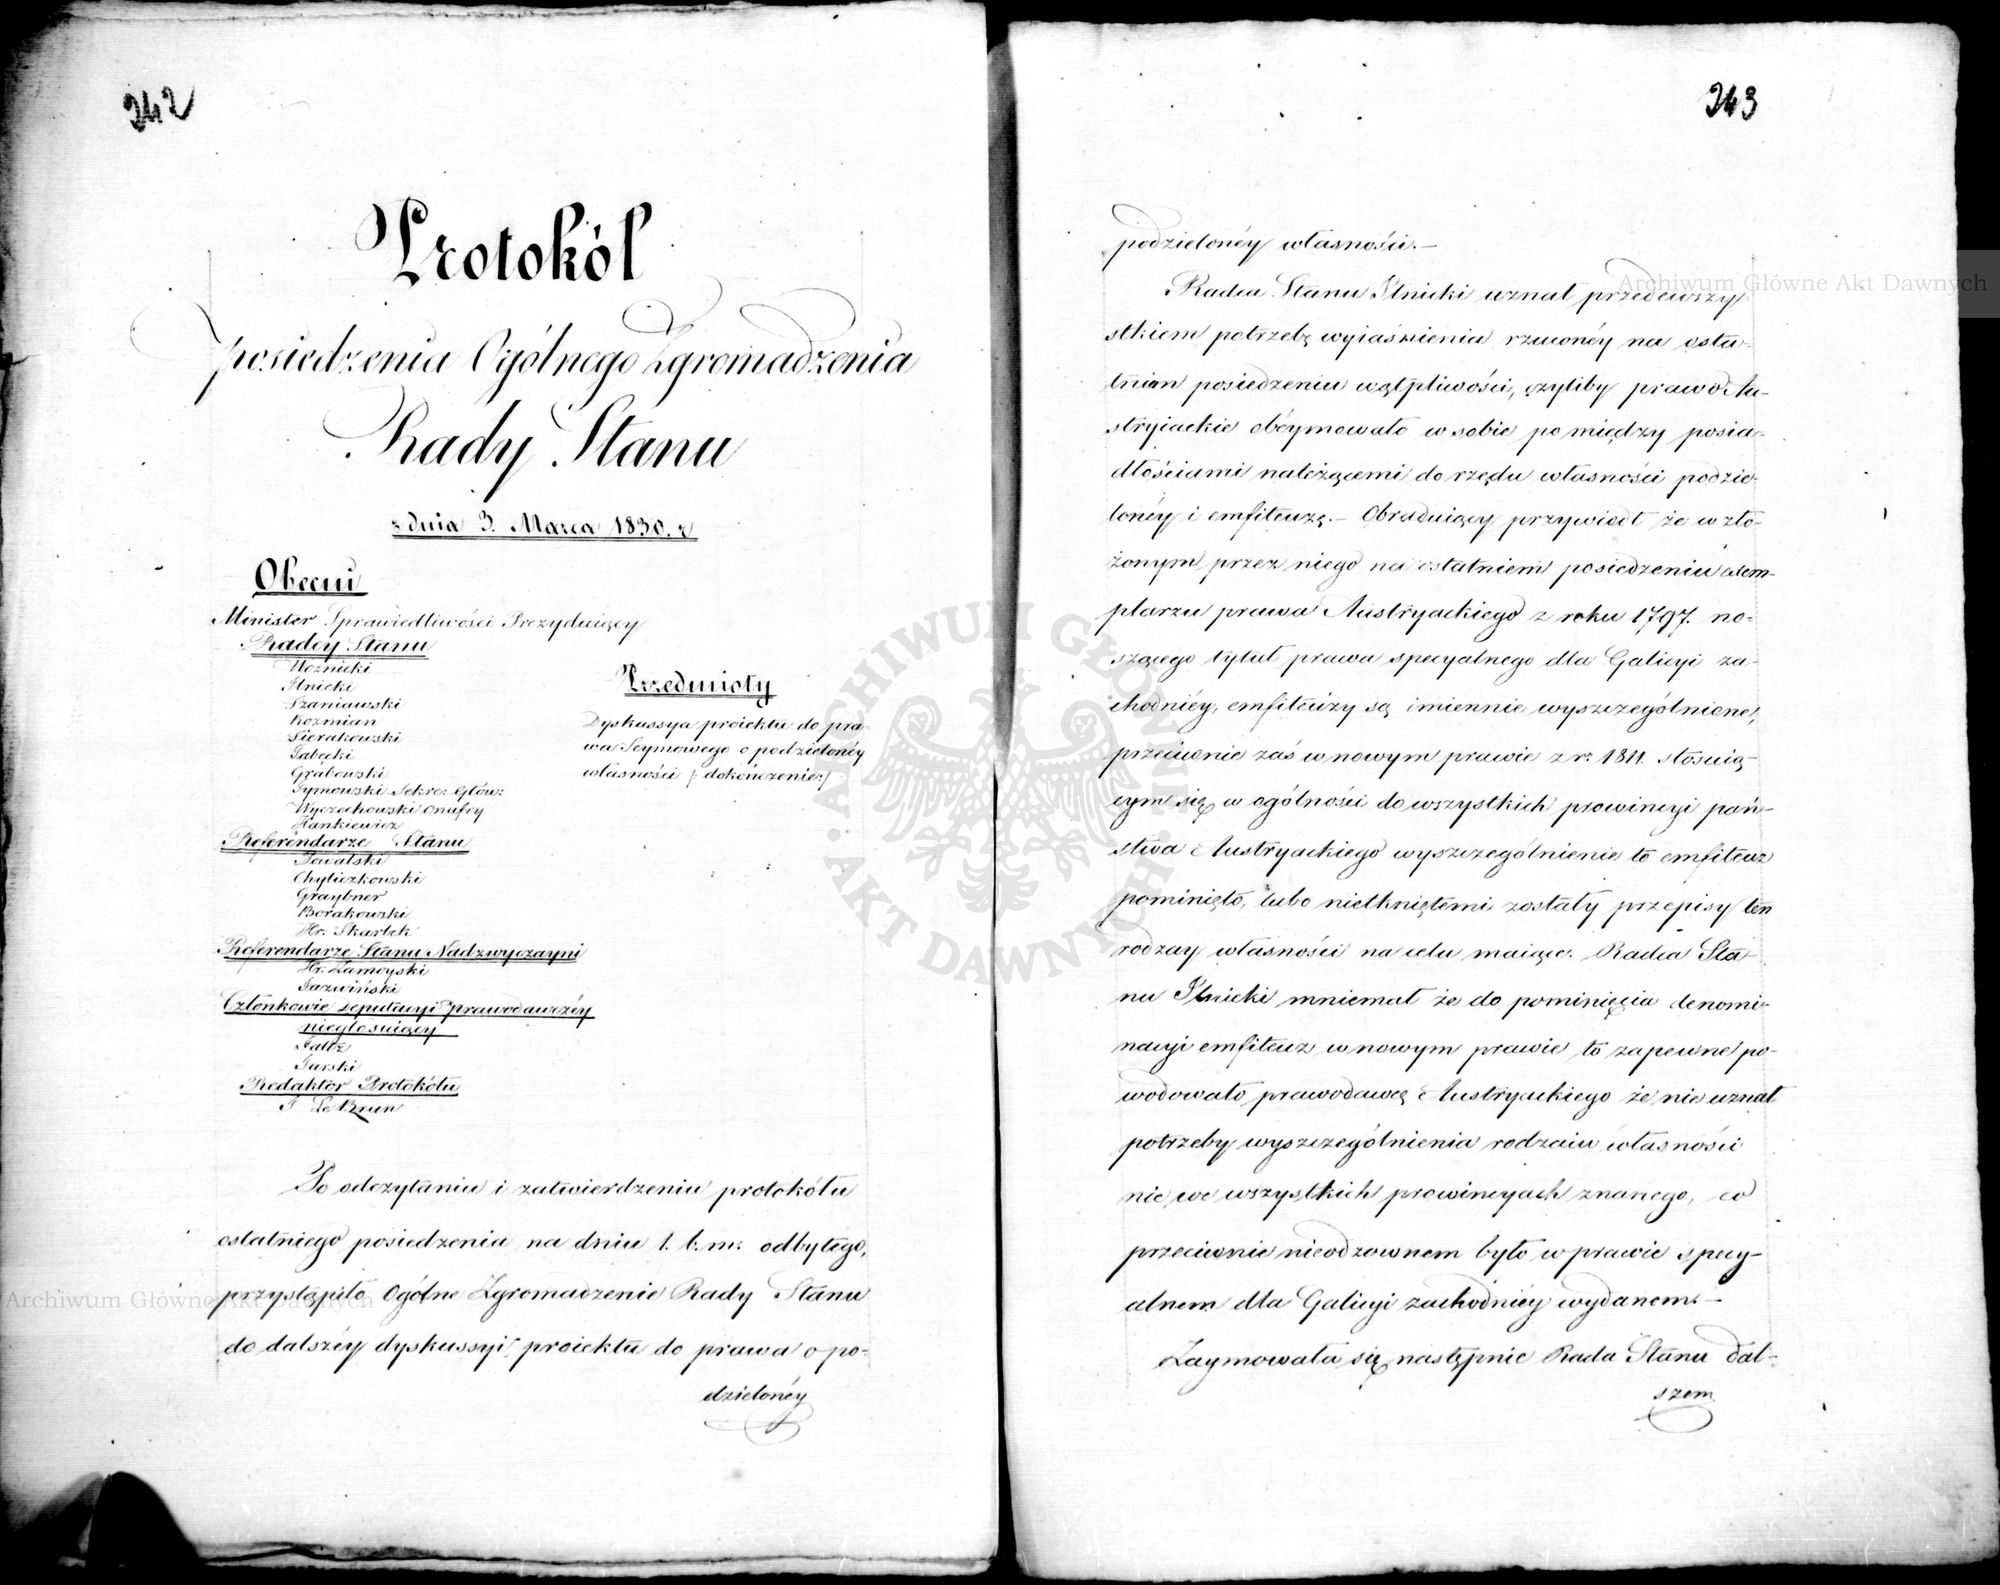 242
Protokół
posiedzenia Ogólnego Zgromadzenia
Rady Stanu
z dnia 3. Marca 1830. r
Obecni
Minister Sprawiedliwości Prezyduiący
Radcy Stanu
Woźnicki
Ilnicki
Szaniawski
Kozmian
Sierakowski
Grabowski
Tymowski Sekre: Głów:
Wyczechowski Onufry
Hankiewicz
Referendarze Stanu
Kowalski
Chyliczkowski
Graybner
Borakowski
Hr: Skarbek
Referendarze Stanu Nadzwyczayni
Hr: Zamoyski
Jazwiński
Członkowie deputacyi prawodawczéy
niegłosuiący
Faltz
Turski
Redaktor Protokółu
J LeBrun
Przedmioty
Dyskussya proiektu do pra-
wa Seymowego o podzielonéy
własności /: dokończenie:/
Po odczytaniu i zatwierdzeniu protokółu
ostatniego posiedzenia na dniu 1. b. m: odbytego,
przystąpiło Ogólne Zgromadzenie Rady Stanu
do dalszéy dyskussyi proiektu do prawa o po-
dzielonéy
243
podzielonéy własności. —
Radca Stanu Ilnicki uznał przedewszy-
stkiem potrzebę wyiaśnienia rzuconéy na osta-
tniem posiedzeniu wątpliwości, czyliby prawo Au-
stryiackie obéymowało w sobie pomiędzy posia-
dłościami należącemi do rzędu własności podzie-
lonéy i emfiteuzę. — Obraduiący przywiódł że w zło-
żonym przez niego na ostatniem posiedzeniu exem-
plarzu prawa Austryackiego z roku 1797. no-
szącego tytuł prawa specyalnego dla Galicyi za-
chodniéy, emfiteuzy są imiennie wyszczególnione,
przeciwnie zaś w nowym prawie z r: 1811. stosuią-
cym się w ogólności do wszystkich prowincyi pań-
stwa Austryackiego wyszczególnienie to emfiteuz
pominięto, lubo nietkniętemi zostały przepisy ten
rodzay własności na celu maiące. Radca Sta-
nu Ilnicki mniemał że do pominięcia denomi-
nacyi emfiteuz w nowym prawie to zapewne po-
wodowało prawodawcę Austryackiego że nie uznał
potrzeby wyszczególnienia rodzaiu własności
nie we wszystkich prowincyach znanego, co
przeciwnie nieodzownem było w prawie specy-
alnem dla Galicyi zachodniéy wydanem. —
Zaymowała się następnie Rada Stanu dal-
szem
Archiwum Główne Akt Dawnych
Archiwum Główne Akt Dawnych
ARCHIWUM GŁÓWNE AKT DAWNYCH